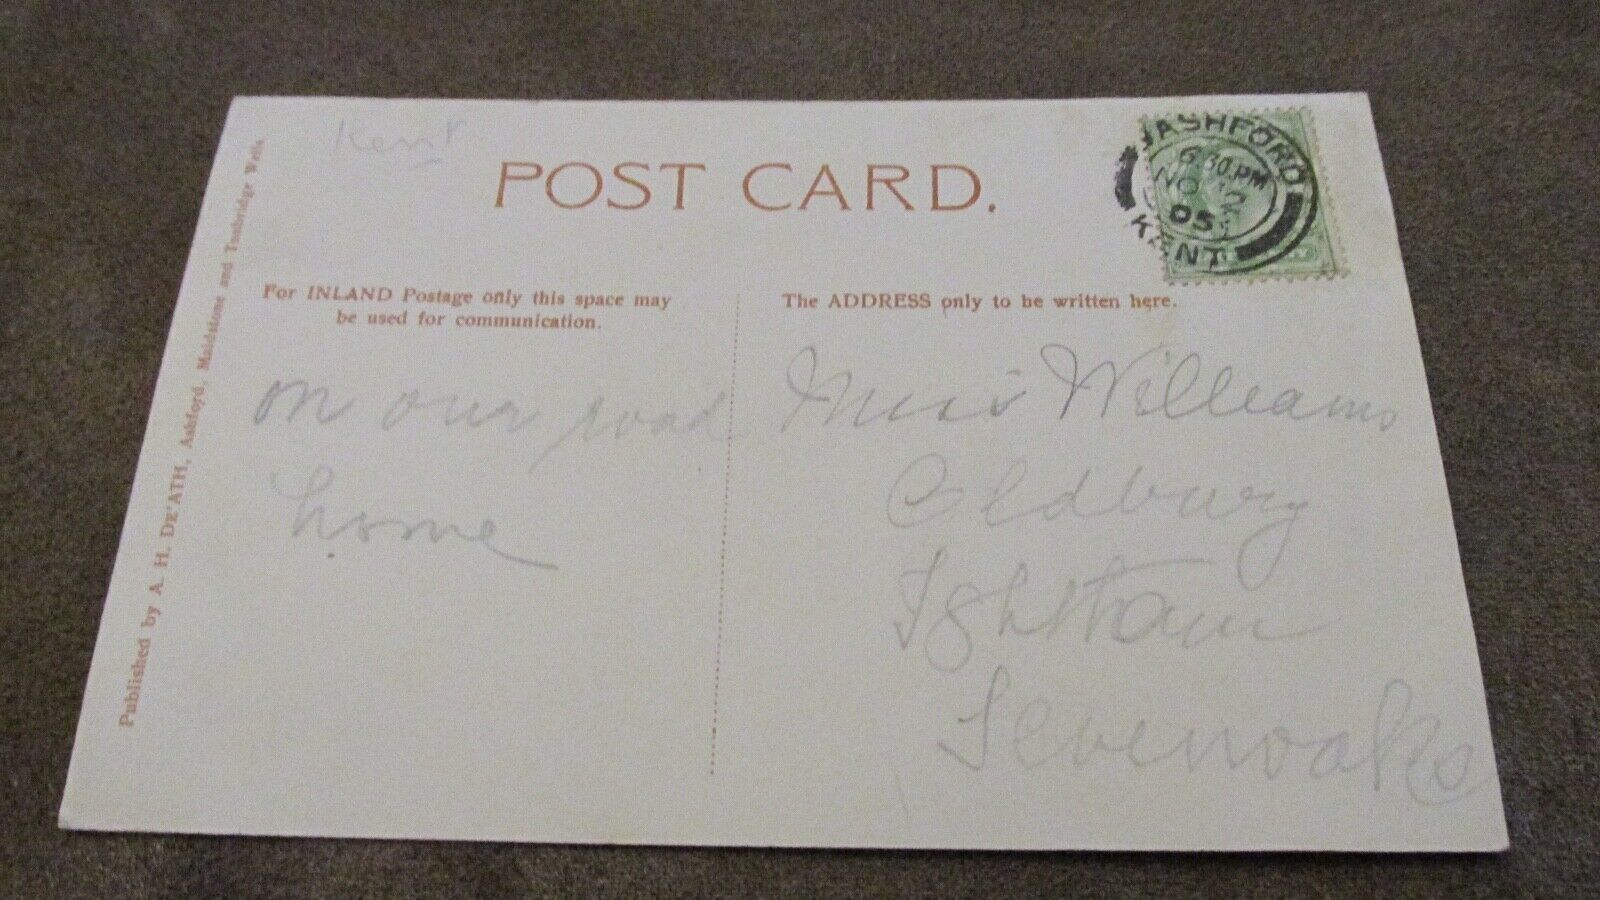 Kent
POST CARD.
ASHFORD
6.30 PM
NO
05
KENT
For INLAND Postage only this space may
be used for communication.
The ADDRESS only to be written here.
on our road
home
Miss Williams
Oldbury
Ightham
Sevenoaks
Published by A. H. DE'ATH, Ashford, Maidstone and Tunbridge Wells.